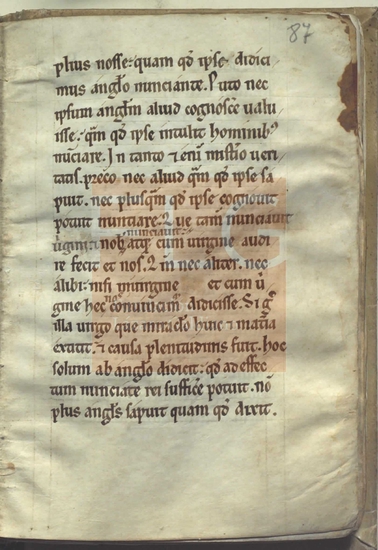 87
plius nosse. quam qd ipse didici
mus anglo nunciante. Puto nec
ipsum anglm aliud cognosce ualu
isse. qm qd ipse intulit hominib;
nunciare. In tanto & eni mistio ueri
tatis. preco nec aliud qm qd ipse sa
puit. nec plusqm qd ipse cognouit
potuit nuntiare. Que tam nunciauit
nunciauit
uirgini. nob atq; cum uirgine audi
re fecit et nos. Qm nec aliter. nec
alibi. nisi in uirgine et cum ui
gine hec nos conuincim didicisse. Si g
illa uirgo que miraclo huic & matia
extitit. & causa plenitudinis fuit. hoc
solum ab anglo didicit. qd ad effec
tum nunciate rei sufficere potuit. non
plus angls sapuit quam qd dixit.